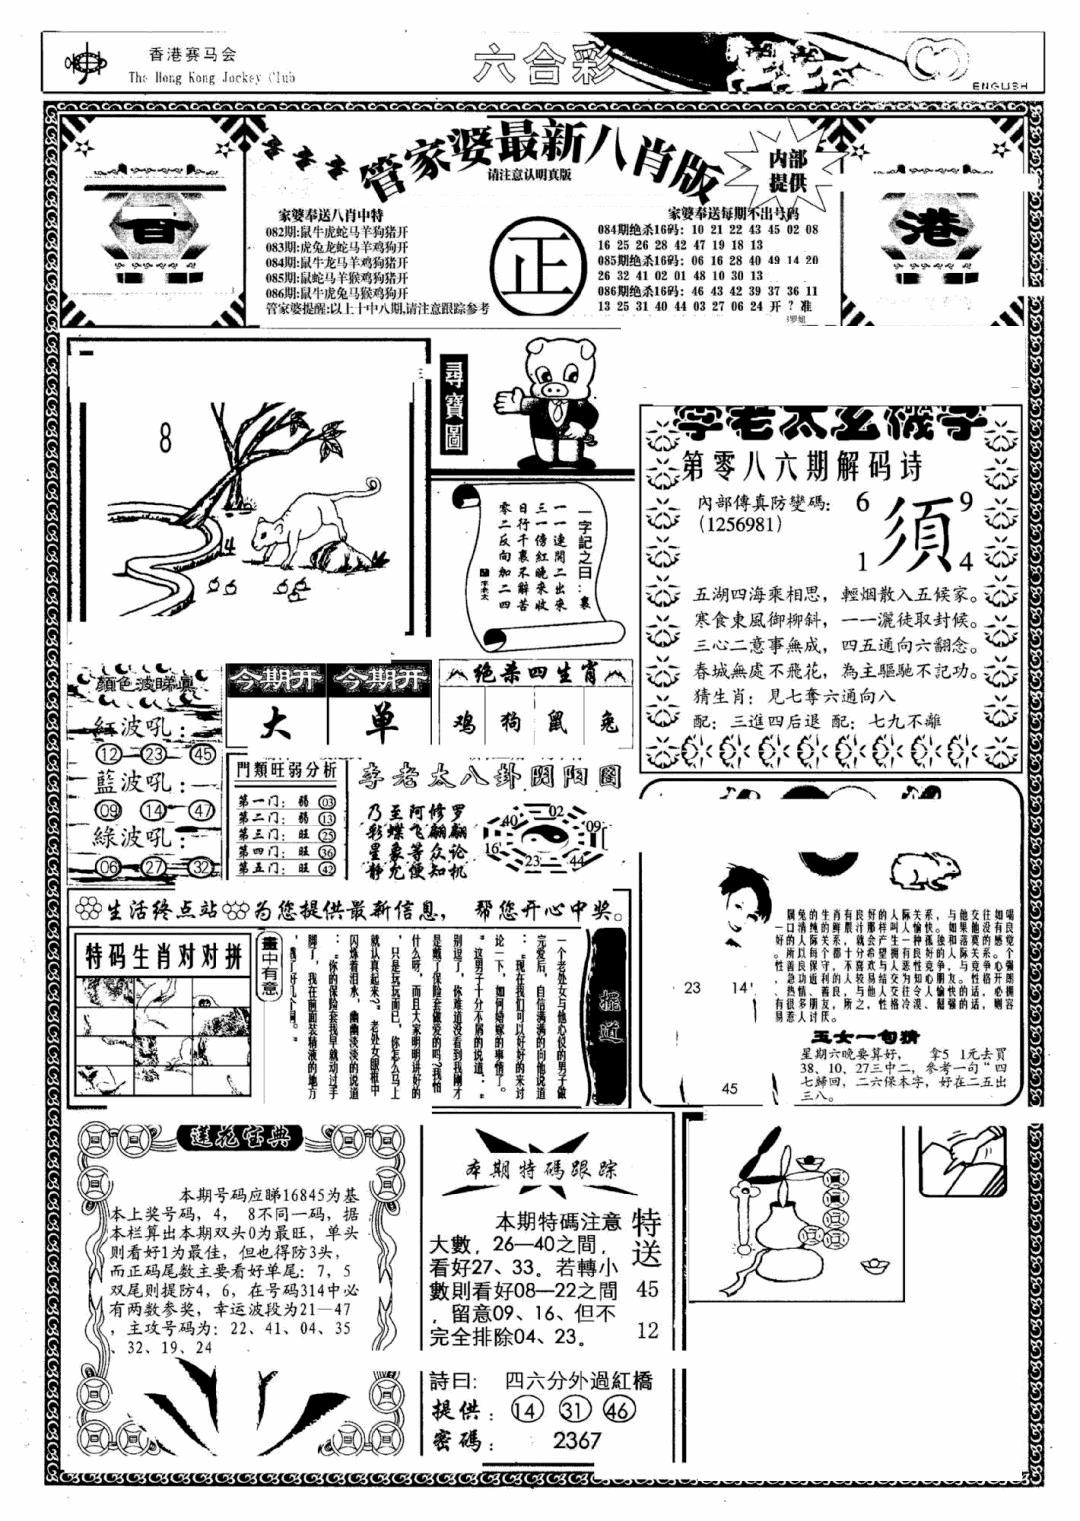 香港赛马会
The Hong Kong Jockey Club
六合彩
ENGLISH
管家婆最新八肖版
请注意认明真版
内部
提供
香
港
家婆奉送八肖中特
082期:鼠牛虎蛇马羊狗猪开
083期:虎兔龙蛇马羊鸡狗开
084期:鼠牛龙马羊鸡狗猪开
085期:鼠蛇马羊猴鸡狗猪开
086期:鼠牛虎兔马猴鸡狗开
管家婆提醒:以上十中八期,请注意跟踪参考
正
家婆奉送每期不出号码
084期绝杀16码: 10 21 22 43 45 02 08
16 25 26 28 42 47 19 18 13
085期绝杀16码: 06 16 28 40 49 14 20
26 32 41 02 01 48 10 30 13
086期绝杀16码: 46 43 42 39 37 36 11
13 25 31 40 44 03 27 06 24 开 ? 准
8
4
尋寶圖
一字記之曰:裏
一一連開二出來
三一傍紅晚來收
日行千裏不辭苦
零二反向加二四
李老太
李老太玄機字
第零八六期解码诗
內部傳真防變碼:
(1256981)
6 9
須
1 4
五湖四海乘相思，輕烟散入五候家。
寒食東風御柳斜，一一灑徒取封候。
三心二意事無成，四五通向六翻念。
春城無處不飛花，為主驅馳不記功。
猜生肖: 見七奪六通向八
配: 三進四后退 配: 七九不離
顏色波睇真
紅波吼:
12 23 45
藍波吼:
09 14 47
綠波吼:
06 27 32
今期开 今期开
大 单
绝杀四生肖
鸡 狗 鼠 兔
門類旺弱分析
第一门: 弱 03
第二门: 弱 13
第三门: 旺 25
第四门: 旺 36
第五门: 旺 42
李老太八卦阴阳图
乃至阿修罗
彩蝶飞翩翩
星象等众论
静龙便知机
40 02 09
16 23 44
生活终点站 为您提供最新信息， 帮您开心中奖。
特码生肖对对拼
畫中有意
一个老处女与他心仪的男子做
完爱后，自信满满的向他说道
：“现在我们可以好好的来讨
论一下，如何结婚的事情了。
”这男子十分不屑的说道：“
别逗了，你难道没看到我刚才
是戴了保险套做爱的吗？我怕
什么呀，而且大家明明讲好的
，只是玩玩而已，你怎么马上
就认真起来？”老处女眼框中
闪烁着泪水，幽幽淡淡的说道
：“你的保险套我早就动过手
脚了，我在前面装精液的地方
，戳了好几个洞。”
属兔的生肖有良好的人际关系。与他交往如喝
一口清纯的鲜果汁那样叫人愉快。如果他没有良
好的人际关系，就会产生一种孤独的和落莫的感觉
。所以保守，不十分希望拥有良好的人际关系。个
性善良保守，人喜欢与人恶性竞争，与竞争心强
23 14
45
玉女一句猜
星期六晚要算好， 拿5 1元去買
38、10、27三中二，參考一句“四
七歸回，二六保本字，好在二五出
三八。
莲花宝典
本期号码应睇16845为基
本上奖号码，4， 8不同一码，据
本栏算出本期双头0为最旺，单头
则看好1为最佳，但也得防3头，
而正码尾数主要看好单尾：7，5
双尾则提防4，6，在号码314中必
有两数参奖，幸运波段为21—47
，主攻号码为：22、41、04、35
、32、19、24
本期特碼跟踪
本期特碼注意
大數，26—40之間，
看好27、33。若轉小
數則看好08—22之間
，留意09、16、但不
完全排除04、23。
特送
45
12
詩曰: 四六分外過紅橋
提供: 14 31 46
密碼: 2367